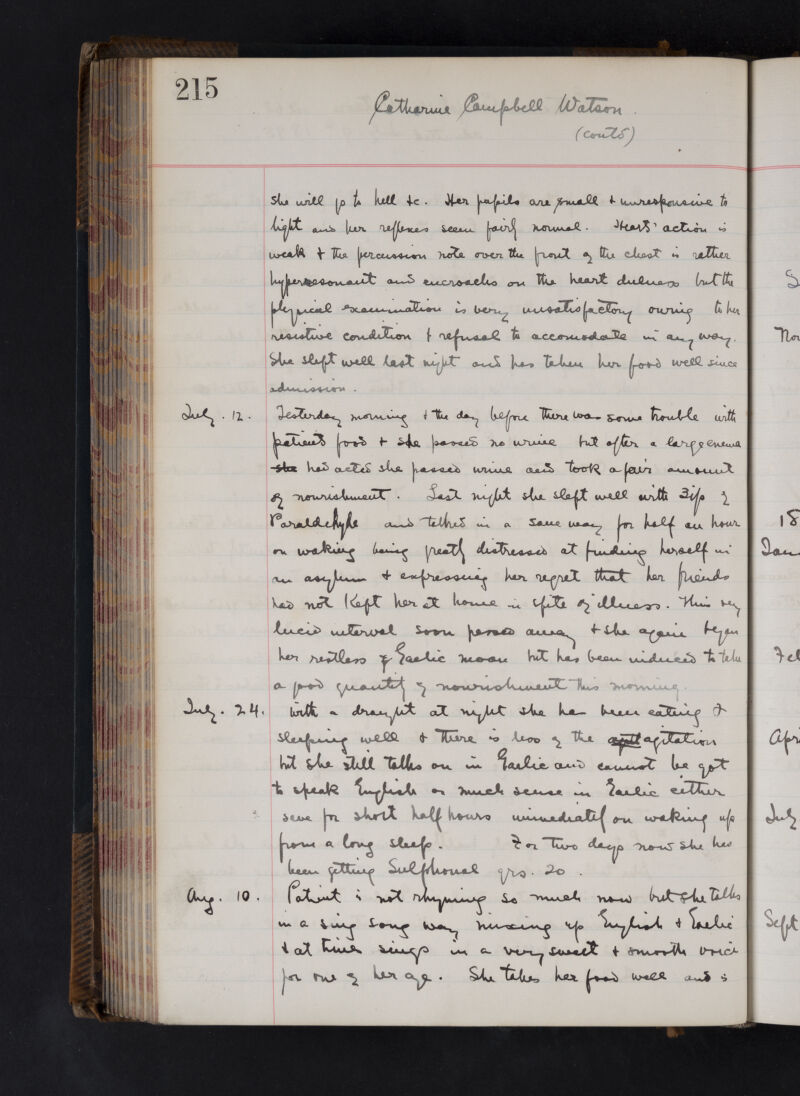 215
Catharine Campbell Watson.
(contd)
she will go to hell &c. Her pupils are small & unresponsive to
light and her reflexes seem fairly normal. Heart's action is
weak & the percussion note over the front of the chest is rather
hyperresonant and encroaches on the heart dulness but the
physical examination is very unsatisfactory owing to her
resistive condition & refusal to accomodate in any way.
She slept well last night and has taken her food well since
admission.
July. 12. Yesterday morning & the day before there was some trouble with
patient's food & she passed no urine but after a large enema
she had acted she passed urine and took a fair amount
of nourishment. Last night she slept well with
Paraldehyde and talked in a sane way for half an hour
on waking being greatly distressed at finding herself in
an asylum & expressing her regret that her friends
had not kept her at home in spite of illness. This very
lucid interval soon passed away & she again began
her restless Gaelic moan but has been induced to take
a good quantity of nourishment this morning.
July. 24. With a draught at night she has been eating &
sleeping well & there is less of the agitation
but she still talks on in Gaelic and cannot be got
to speak English or much sense in Gaelic either
save for short half hours immediately on waking up
from a long sleep. For two days now she has
been getting Sulphonal grs. 20.
Aug. 10. Patient is not rhyming so much now but she talks
in a sing song way mixing up English & Gaelic
& at times sings in a very sweet & smooth voice
for one of her age. She takes her food well and is
Nov
18
Jan
Feb
Apri
July
Sept